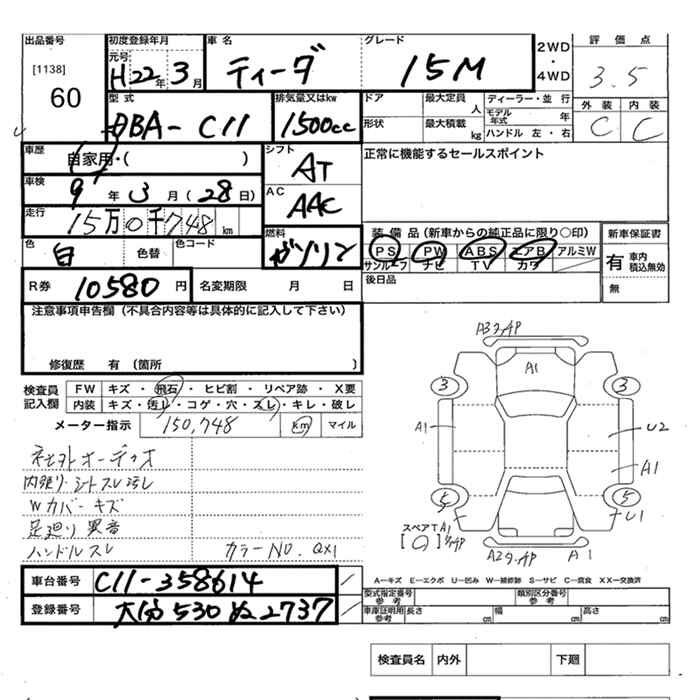 出品番号 初度登録年月 車名 グレード 2WD・4WD 評価点
[1138] 60 元号 H22年3月 ティーダ 15M 3.5
型式 排気量又はkw ドア 最大定員 人 ディーラー・並行 外装 内装
DBA-C11 1500cc 形状 最大積載 kg モデル年式 年 C C
ハンドル 左・右
車歴 自家用・( ) シフト AT 正常に機能するセールスポイント
車検 9年3月(28日) AC AAC
走行 15万0千748km 燃料 ガソリン 装備品(新車からの純正品に限り○印) 新車保証書
色 白 色替 色コード PS PW ABS エアB アルミW 有 車内積込無効
サンルーフ ナビ TV カワ 無
R券 10580円 名変期限 月 日 後日品
注意事項申告欄(不具合内容等は具体的に記入して下さい)
修復歴 有(箇所 )
検査員記入欄 FW キズ・飛石・ヒビ割・リペア跡・X要
内装 キズ・汚レ・コゲ・穴・スレ・キレ・破レ
メーター指示 150,748 km マイル
社外オーディオ
内張り・シートスレ汚レ
Wカバーキズ
足廻り異音
ハンドルスレ カラーNo. QX1
A1
3 3
A1 U2
A1
5 5
U1
スペアタ
A1
A1
A-キズ E-エクボ U-凹み W-補修跡 S-サビ C-腐食 XX-交換済
車台番号 C11-358614
登録番号 大分530ぬ2737
型式指定番号 参考 類別区分番号 参考
車庫証明用 参考 長さ cm 幅 cm 高さ cm
検査員名 内外 下廻